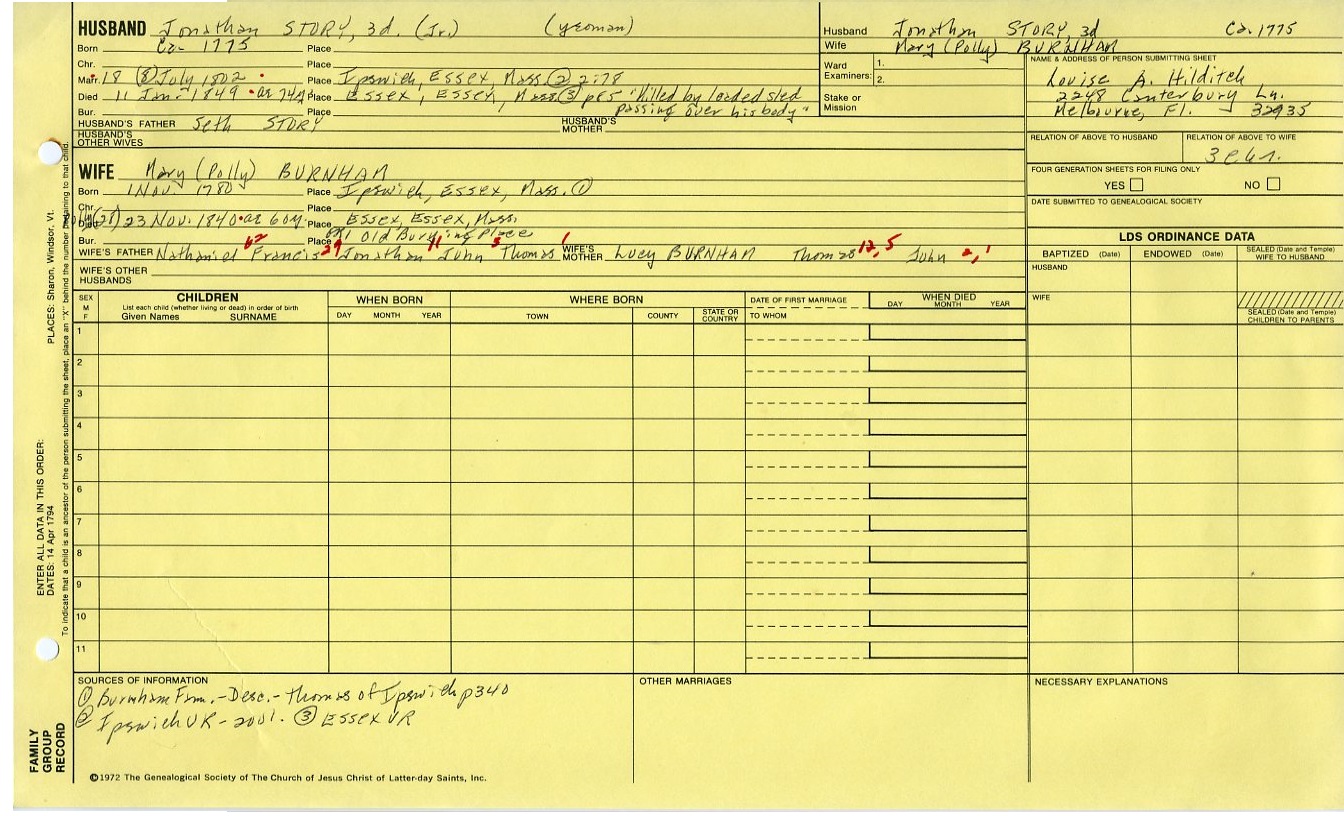 HUSBAND Jonathan STORY, 3d. (Jr.) (yeoman)
Born Ca- 1775 Place
Chr. Place
Marr. 18 (8) July 1802 Place Ipswich, Essex, Mass. ② 2:78
Died 11 Jan. 1849 ae 74 Place Essex, Essex, Mass ③ p85 "Killed by loaded sled
Bur. Place passing over his body"
HUSBAND'S FATHER Seth STORY HUSBAND'S MOTHER
HUSBAND'S OTHER WIVES
Husband Jonathan STORY, 3d Ca. 1775
Wife Mary (Polly) BURNHAM
Ward Examiners: 1.
2.
Stake or Mission
NAME & ADDRESS OF PERSON SUBMITTING SHEET
Louise A. Hilditch
2248 Canterbury Ln.
Melbourne, Fl. 32935
RELATION OF ABOVE TO HUSBAND RELATION OF ABOVE TO WIFE
FOUR GENERATION SHEETS FOR FILING ONLY
YES NO
DATE SUBMITTED TO GENEALOGICAL SOCIETY
WIFE Mary (Polly) BURNHAM
Born 1 Nov. 1780 Place Ipswich, Essex, Mass. ①
Chr. Place
Died (21) 23 Nov. 1840 ae 60y. Place Essex, Essex, Mass.
Bur. Place Old Burying Place
62 29 11 3 1 12, 5 2, 1
WIFE'S FATHER Nathaniel Francis Jonathan John Thomas WIFE'S MOTHER Lucy BURNHAM Thomas John
WIFE'S OTHER HUSBANDS
LDS ORDINANCE DATA
BAPTIZED (Date) ENDOWED (Date) SEALED (Date and Temple) WIFE TO HUSBAND
HUSBAND
WIFE
SEALED (Date and Temple) CHILDREN TO PARENTS
SEX M F CHILDREN WHEN BORN WHERE BORN DATE OF FIRST MARRIAGE WHEN DIED
List each child (whether living or dead) in order of birth DAY MONTH YEAR
Given Names SURNAME DAY MONTH YEAR TOWN COUNTY STATE OR COUNTRY TO WHOM
1
2
3
4
5
6
7
8
9
10
11
SOURCES OF INFORMATION OTHER MARRIAGES NECESSARY EXPLANATIONS
① Burnham Fam.-Desc.-Thomas of Ipswich p340
② Ipswich VR - 2vol. ③ Essex VR
©1972 The Genealogical Society of The Church of Jesus Christ of Latter-day Saints, Inc.
FAMILY GROUP RECORD
ENTER ALL DATA IN THIS ORDER:
DATES: 14 Apr 1794
PLACES: Sharon, Windsor, Vt.
To indicate that a child is an ancestor of the person submitting the sheet, place an "X" behind the number pertaining to that child.